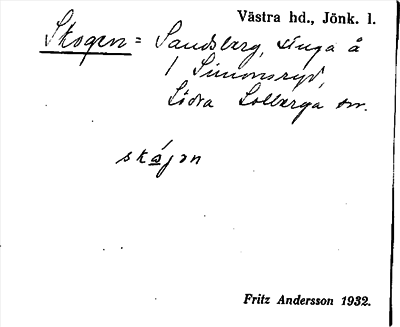 Västra hd., Jönk. l.
Skogen = Sandsberg, äga å
1 Simonsryd,
Södra Solberga sn.
skájan
Fritz Andersson 1932.